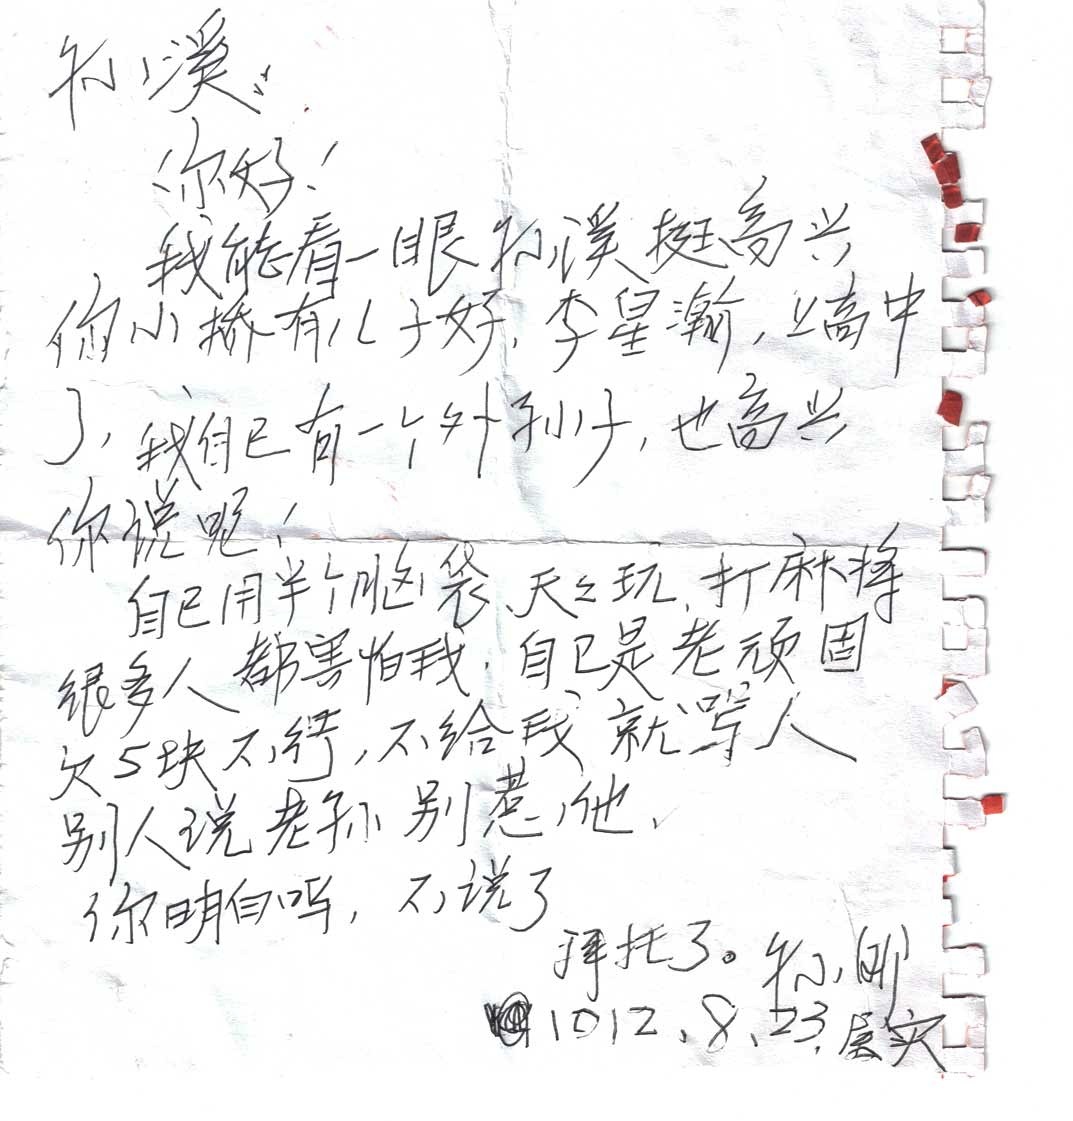 孙溪:
你好!
我能看一眼孙溪挺高兴
你小矫有儿子好,李星瀚,上高中
了,我自己有一个外孙子,也高兴
你说呢!
自己用半个脑袋、天天玩,打麻将
很多人都害怕我,自己是老顽固
欠5块不行,不给我就骂人
别人说老孙别惹他,
你明白吗,不说了
拜托了。孙刚
1012.8.23,